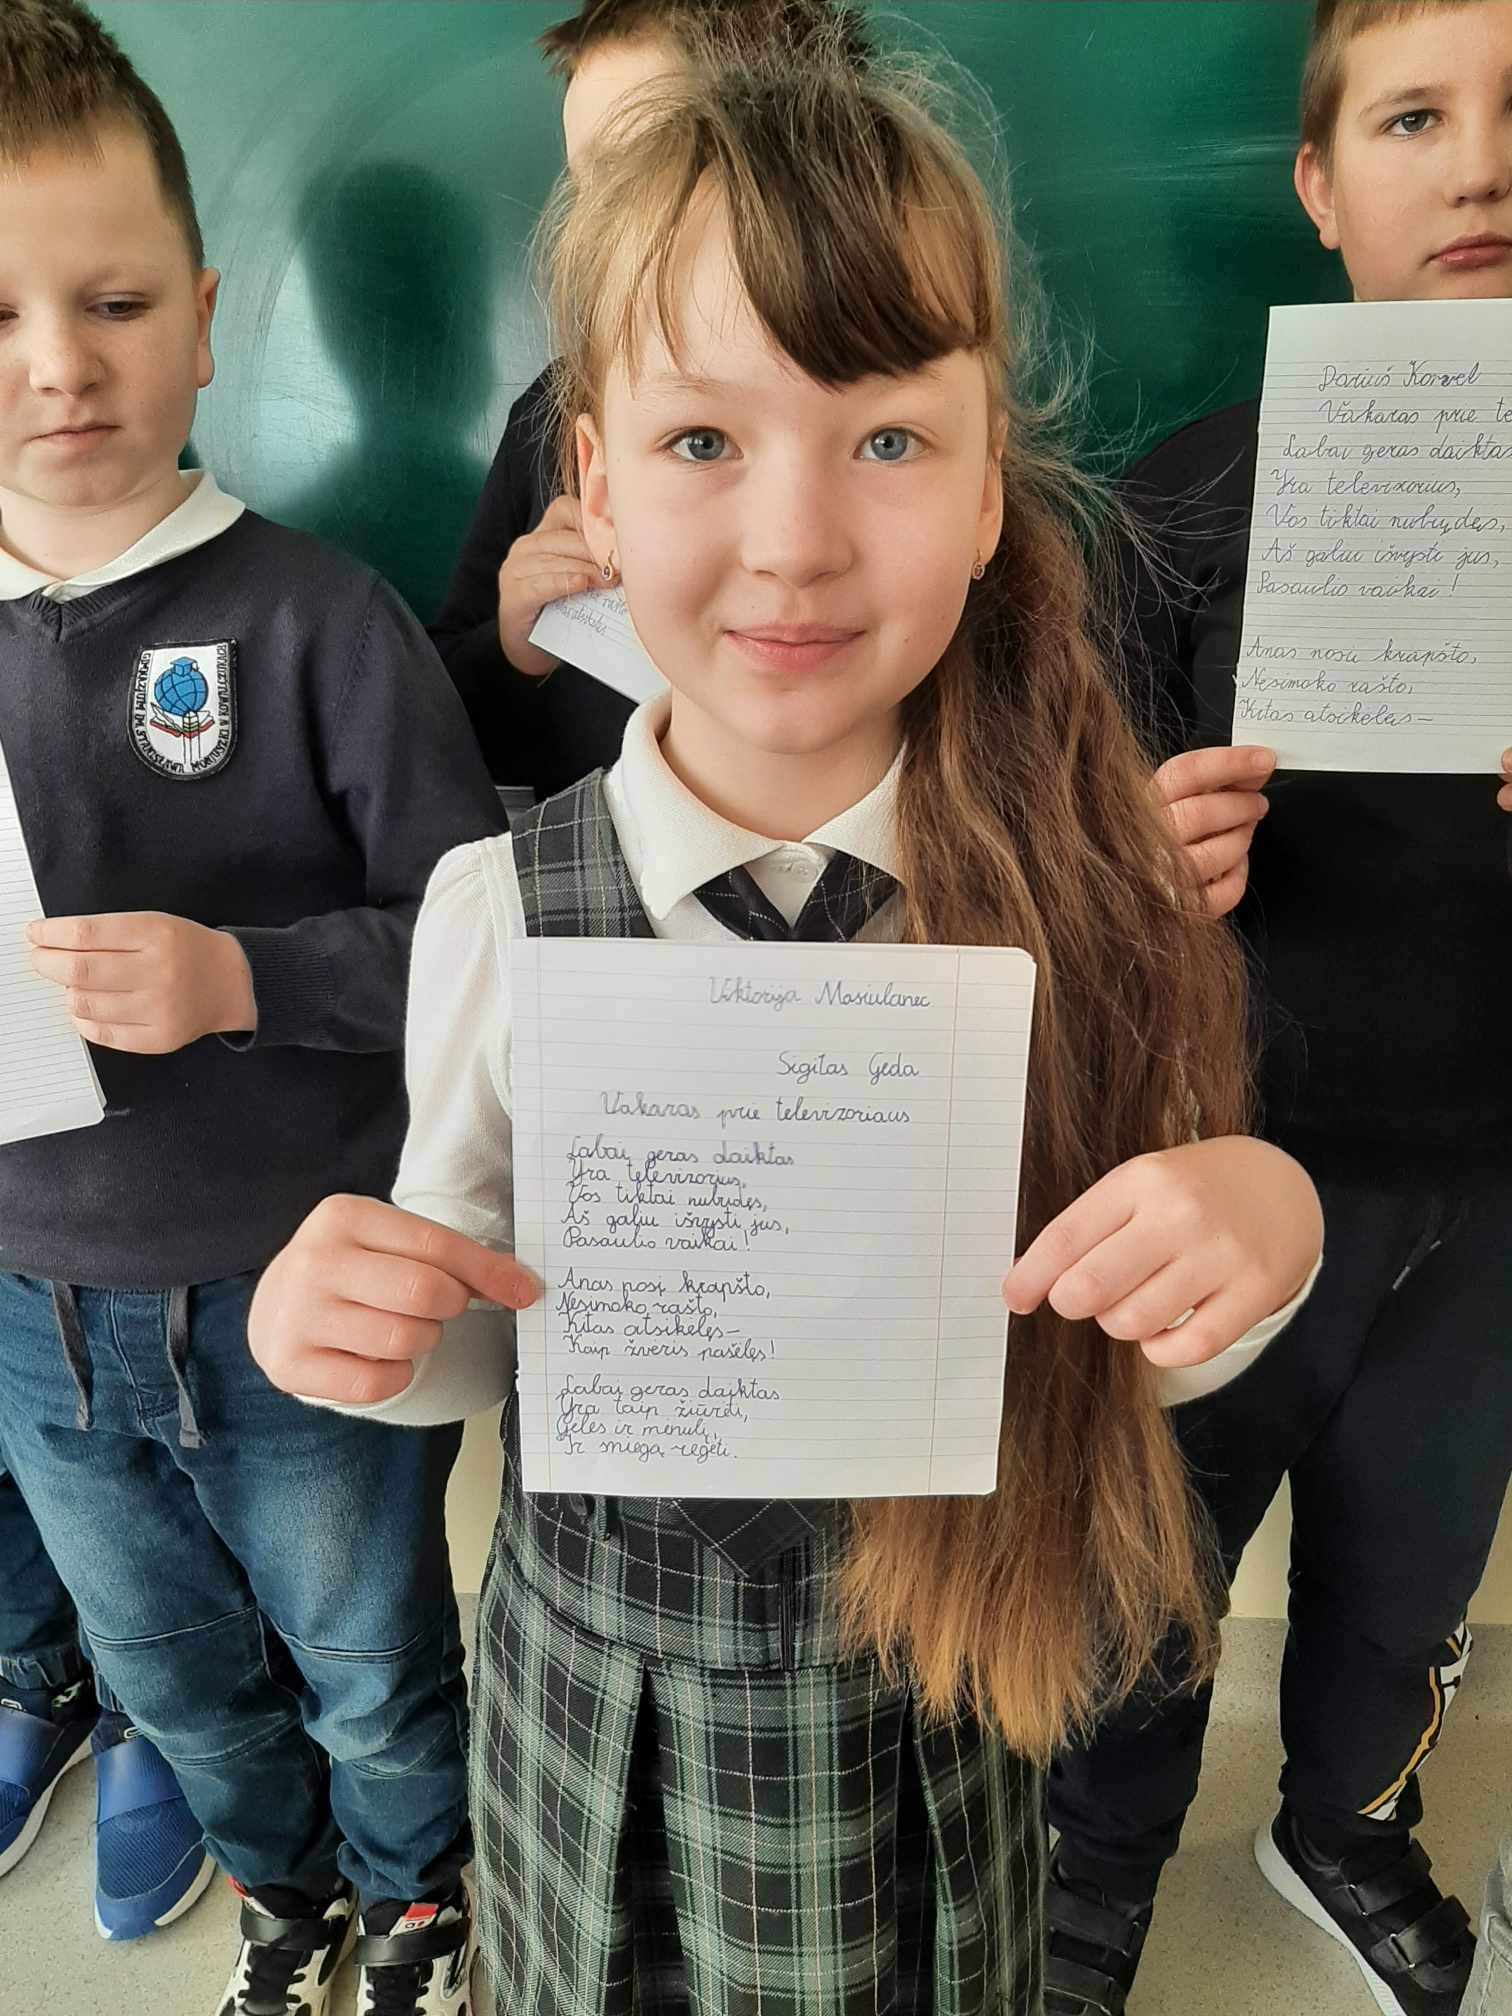 Viktorija Masiulanec
Sigitas Geda
Vakaras prie televizoriaus
Labai geras daiktas
Yra televizorius,
Vos tiktai nubudęs,
Aš galiu išvysti jus,
Pasaulio vaikai!
Anas nosį krapšto,
Nesimoko rašto,
Kitas atsikėlęs—
Kaip žvėris pašėlęs!
Labai geras daiktas
Yra taip žiūrėti,
Gėlės ir mėnulį,
Ir sniegą regėti.
Dariuš Korvel
Vakaras prie te
Labai geras daiktas
Yra televizorius,
Vos tiktai nubudęs,
Aš galiu išvysti jus,
Pasaulio vaikai!
Anas nosį krapšto,
Nesimoko rašto,
Kitas atsikėlęs—
GIMNAZJUM IM. STANISŁAWA MONIUSZKI W KOWALCZUKACH